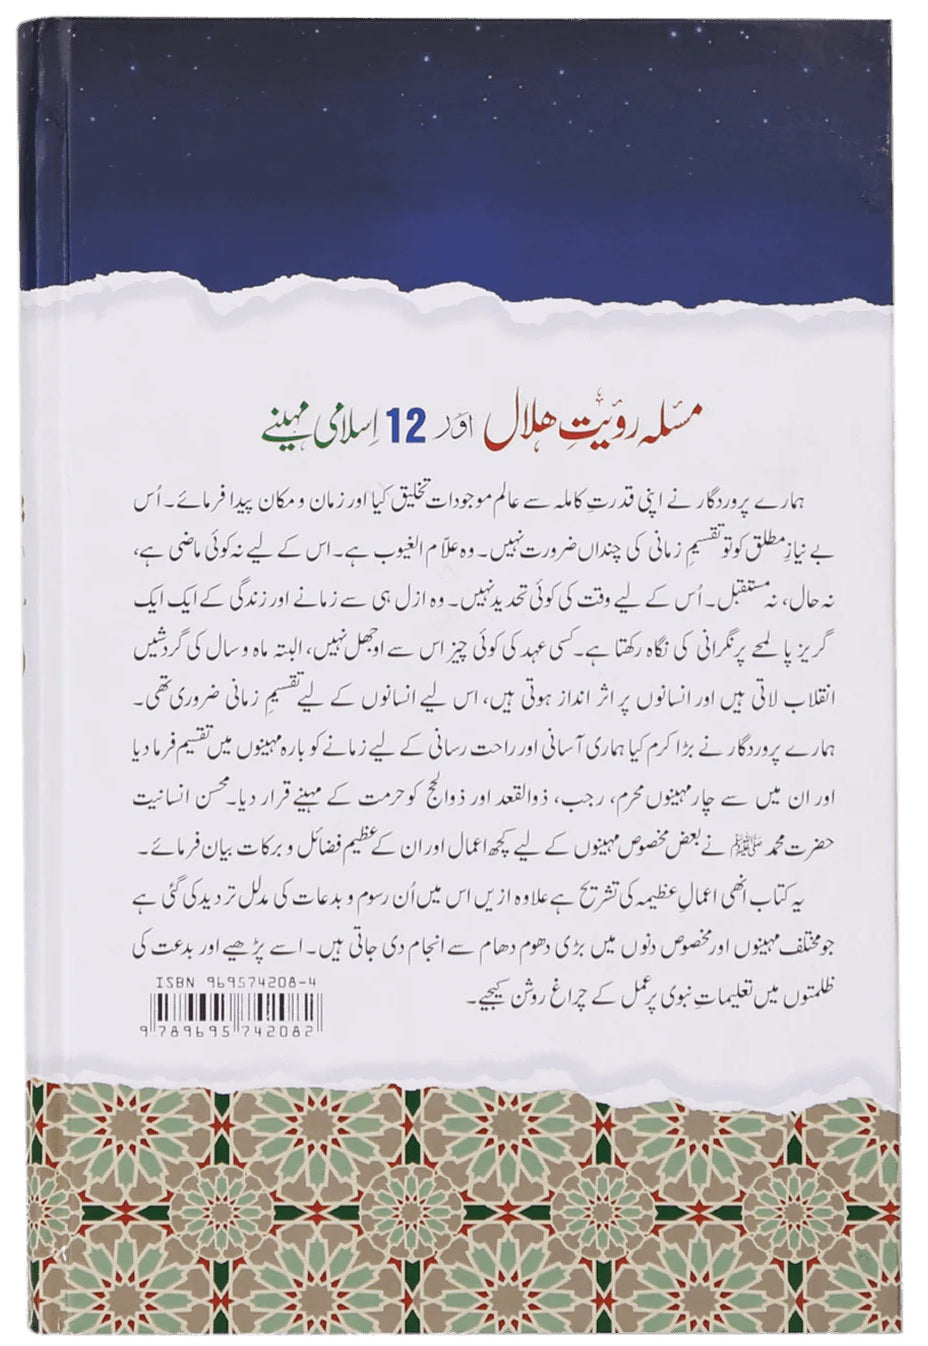 مسئلہ رؤیتِ ھلال اور 12 اِسلامی مہینے
ہمارے پروردگار نے اپنی قدرتِ کاملہ سے عالم موجودات تخلیق کیا اور زمان و مکان پیدا فرمائے۔ اُس
بے نیازِ مطلق کو تو تقسیمِ زمانی کی چنداں ضرورت نہیں۔ وہ علّام الغیوب ہے۔ اس کے لیے نہ کوئی ماضی ہے،
نہ حال، نہ مستقبل۔ اُس کے لیے وقت کی کوئی تحدید نہیں۔ وہ ازل ہی سے زمانے اور زندگی کے ایک ایک
گریز پا لمحے پر نگرانی کی نگاہ رکھتا ہے۔ کسی عہد کی کوئی چیز اس سے اوجھل نہیں، البتہ ماہ و سال کی گردشیں
انقلاب لاتی ہیں اور انسانوں پر اثر انداز ہوتی ہیں، اس لیے انسانوں کے لیے تقسیمِ زمانی ضروری تھی۔
ہمارے پروردگار نے بڑا کرم کیا ہماری آسانی اور راحت رسانی کے لیے زمانے کو بارہ مہینوں میں تقسیم فرما دیا
اور ان میں سے چار مہینوں محرم، رجب، ذوالقعد اور ذوالحج کو حرمت کے مہینے قرار دیا۔ محسن انسانیت
حضرت محمد ﷺ نے بعض مخصوص مہینوں کے لیے کچھ اعمال اور ان کے عظیم فضائل و برکات بیان فرمائے۔
یہ کتاب انھی اعمالِ عظیمہ کی تشریح ہے علاوہ ازیں اس میں اُن رسوم و بدعات کی مدلل تردید کی گئی ہے
جو مختلف مہینوں اور مخصوص دنوں میں بڑی دھوم دھام سے انجام دی جاتی ہیں۔ اسے پڑھیے اور بدعت کی
ظلمتوں میں تعلیماتِ نبوی پر عمل کے چراغ روشن کیجیے۔
ISBN 969574208-4
9 789695 742082